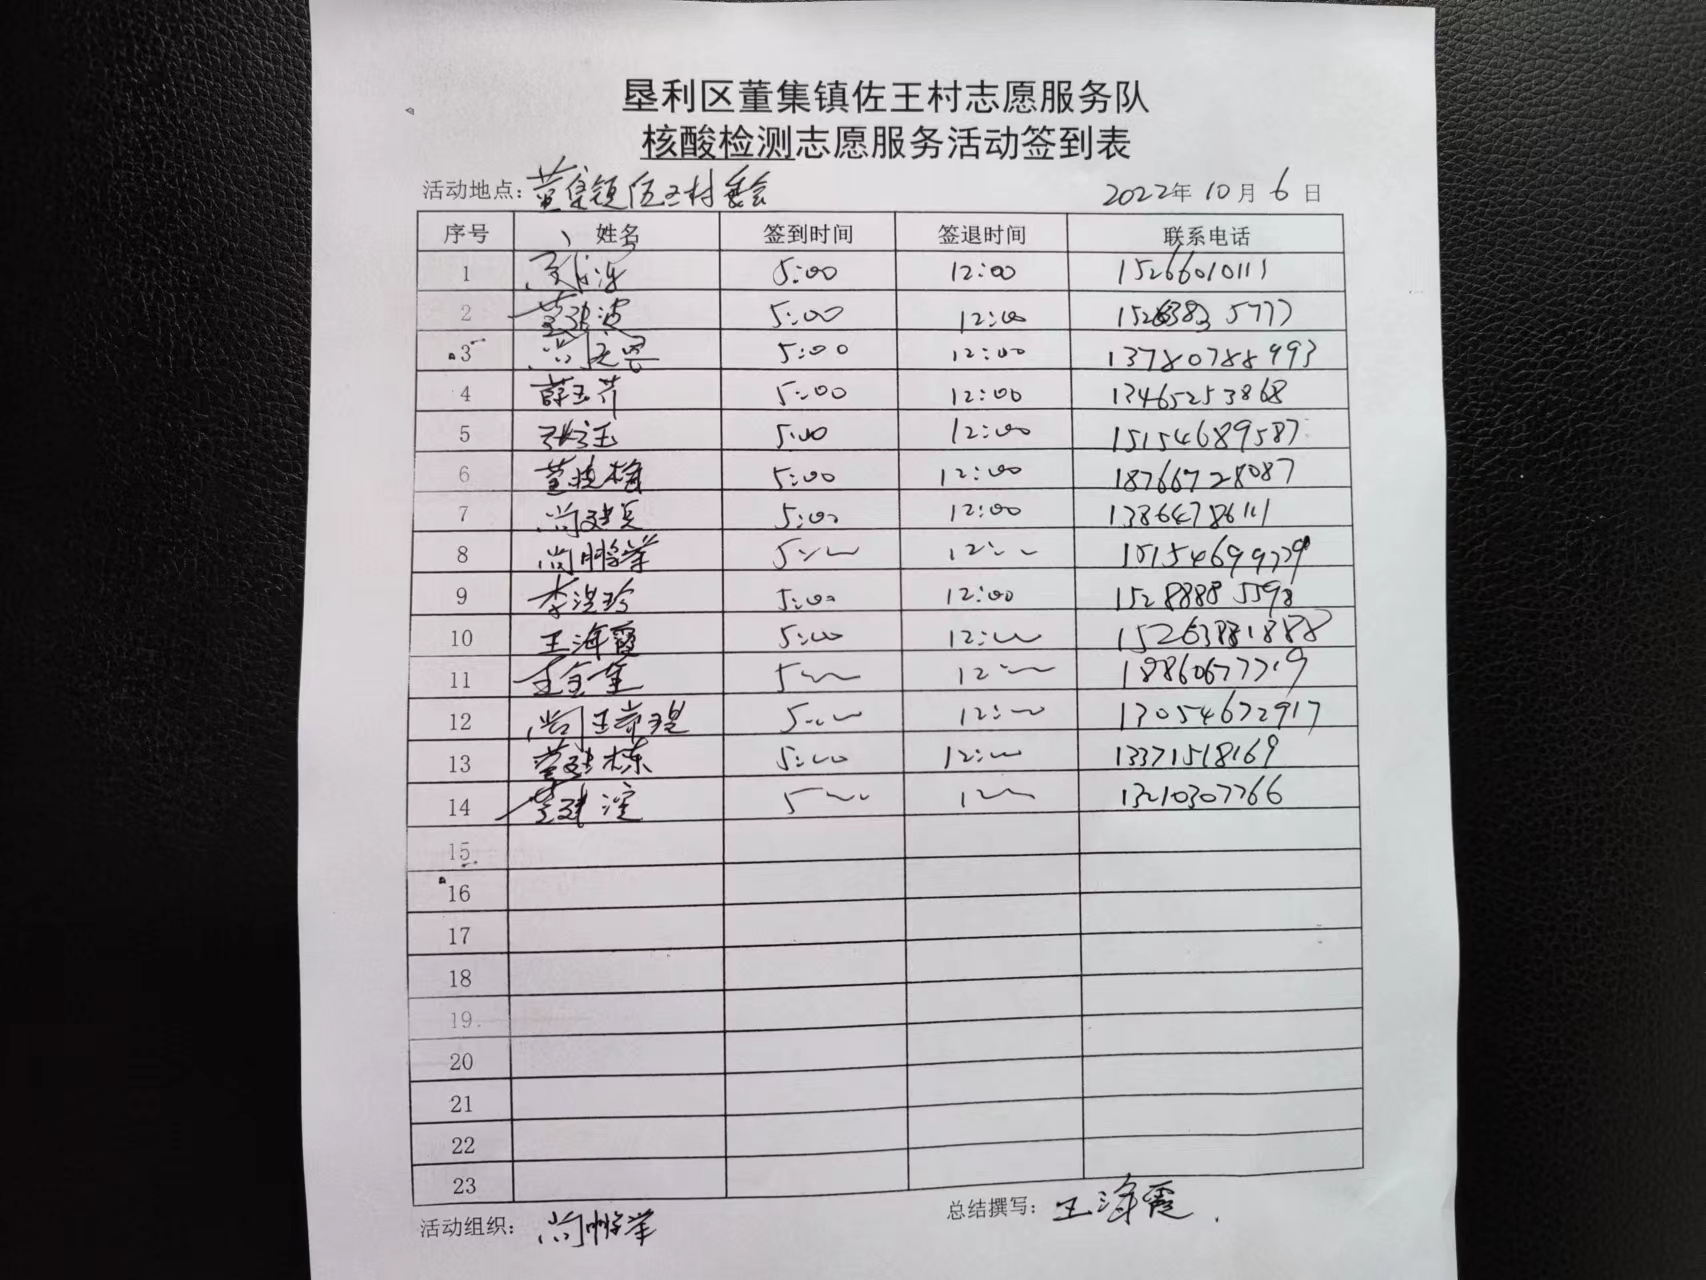 垦利区董集镇佐王村志愿服务队
核酸检测志愿服务活动签到表
活动地点：董集镇佐王村委会 2022年10月6日
序号 姓名 签到时间 签退时间 联系电话
1 5:00 12:00 15266010111
2 5:00 12:00 5777
3 5:00 12:00 13780788993
4 薛玉芹 5:00 12:00 13465253868
5 张玉 5:00 12:00 15154689587
6 董晓梅 5:00 12:00 18766728087
7 尚建兵 5:00 12:00 13864786111
8 尚鹏举 5:00 12:00 15154699779
9 李洪珍 5:00 12:00 15288885598
10 王海霞 5:00 12:00 15263881888
11 王金奎 5:00 12:00 18860677719
12 尚 5:00 12:00 13054672917
13 董建栋 5:00 12:00 13371518169
14 董建淀 5:00 12:00 13210307766
15
16
17
18
19
20
21
22
23
活动组织：尚鹏举 总结撰写：王海霞